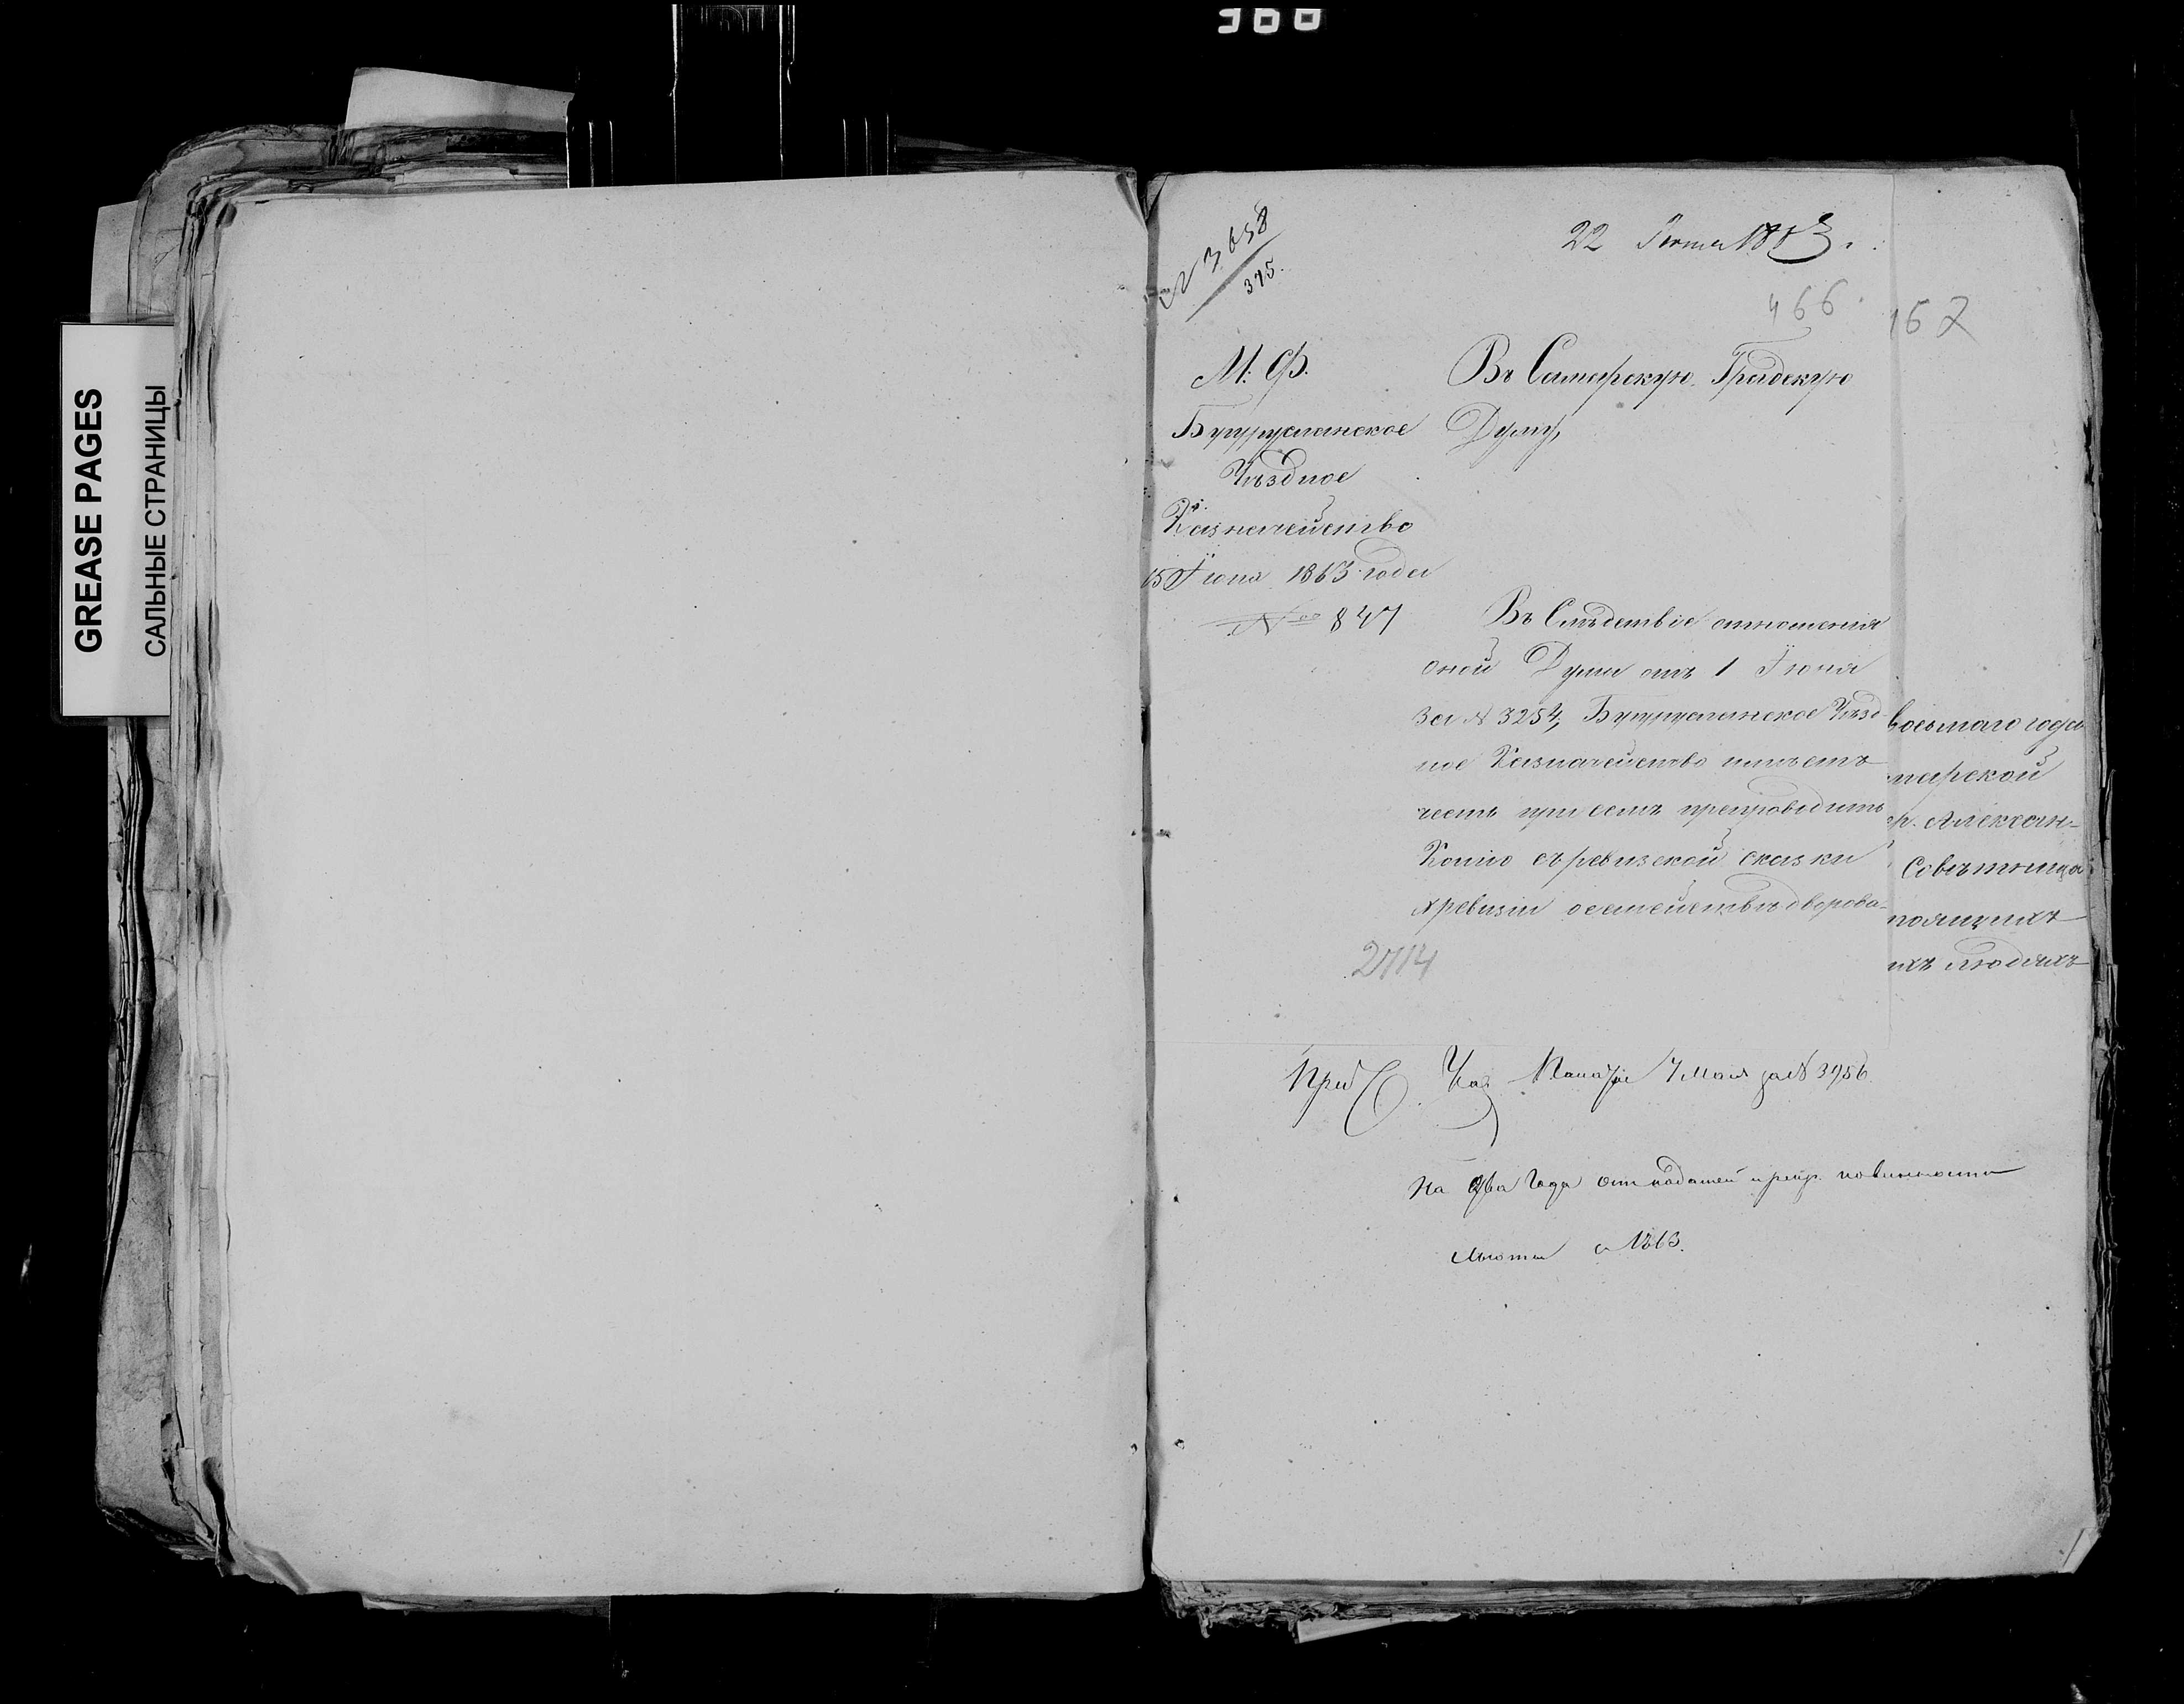 366
GREASE PAGES
САЛЬНЫЕ СТРАНИЦЫ
№ 3658
375.
22 Июня 1863.
466
167
М. Ф.
Бугурусланское
Уѣздное
Казначейство
15 Іюня 1863 года
№ 847
Въ Самарскую Градскую
Думу,
Въ Слѣдствіе отношенія
оной Думы отъ 1 Іюня
За № 3254, Бугурусланское Уѣзд-
ное Казначейство имѣетъ
честь при семъ препроводить
Копію съ ревизской сказки
X ревизіи о семействѣ дворова-
2714
восьмаго года
марской
Алексан-
Совѣтница
тоящихъ
ихъ людяхъ
Каз Палаты 7 Мая за № 3756
На два года от податей и рекр. повинности
льготы с 1863.